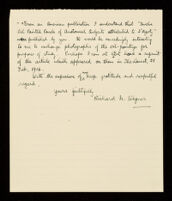 "From an American publication I understand that "Twelve
Oil Painted Cards of Anatomical Subjects attributed to Piggott"
was published by you. It would be exceedingly interesting
to me to exchange photographs of the oil-paintings for
purpose of study. Perhaps I can at that send a reprint
of the article which appeared on them in The Lancet, 26
Feb., 1916.
With the expression of deep gratitude and respectful
regard,
Yours faithfully,
Richard N. Wegner